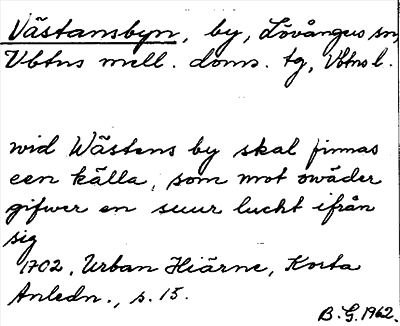 Västansbyn, by, Lövångers sn,
Vbtns mell. doms. tg, Vbtns l.
wid Wästens by skal finnas
een källa, som mot owäder
gifwer en suur lucht ifrån
sig
1702, Urban Hiärne, Korta
Anledn., s. 15.
B. G. 1962.